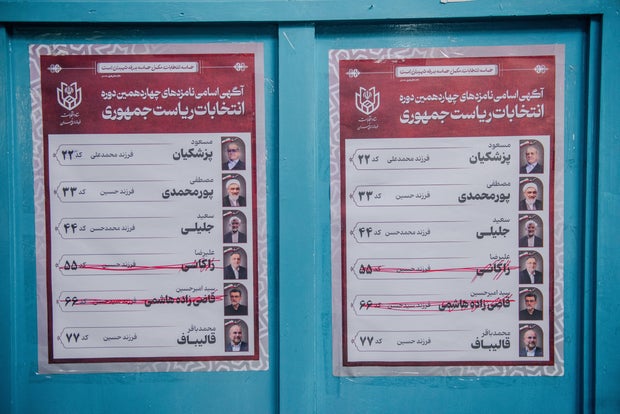 حماسه انتخابات، مکمل حماسه بدرقه شهیدان است
آگهی اسامی نامزدهای چهاردهمین دوره
انتخابات ریاست جمهوری
مسعود
پزشکیان
فرزند محمدعلی
کد ۲۲
مصطفی
پورمحمدی
فرزند حسین
کد ۳۳
سعید
جلیلی
فرزند محمدحسن
کد ۴۴
علیرضا
زاکانی
فرزند حسین
کد ۵۵
سید امیرحسین
قاضی زاده هاشمی
فرزند سیدحسن
کد ۶۶
محمدباقر
قالیباف
فرزند حسین
کد ۷۷
حماسه انتخابات، مکمل حماسه بدرقه شهیدان است
آگهی اسامی نامزدهای چهاردهمین دوره
انتخابات ریاست جمهوری
مسعود
پزشکیان
فرزند محمدعلی
کد ۲۲
مصطفی
پورمحمدی
فرزند حسین
کد ۳۳
سعید
جلیلی
فرزند محمدحسن
کد ۴۴
علیرضا
زاکانی
فرزند حسین
کد ۵۵
سید امیرحسین
قاضی زاده هاشمی
فرزند سیدحسن
کد ۶۶
محمدباقر
قالیباف
فرزند حسین
کد ۷۷